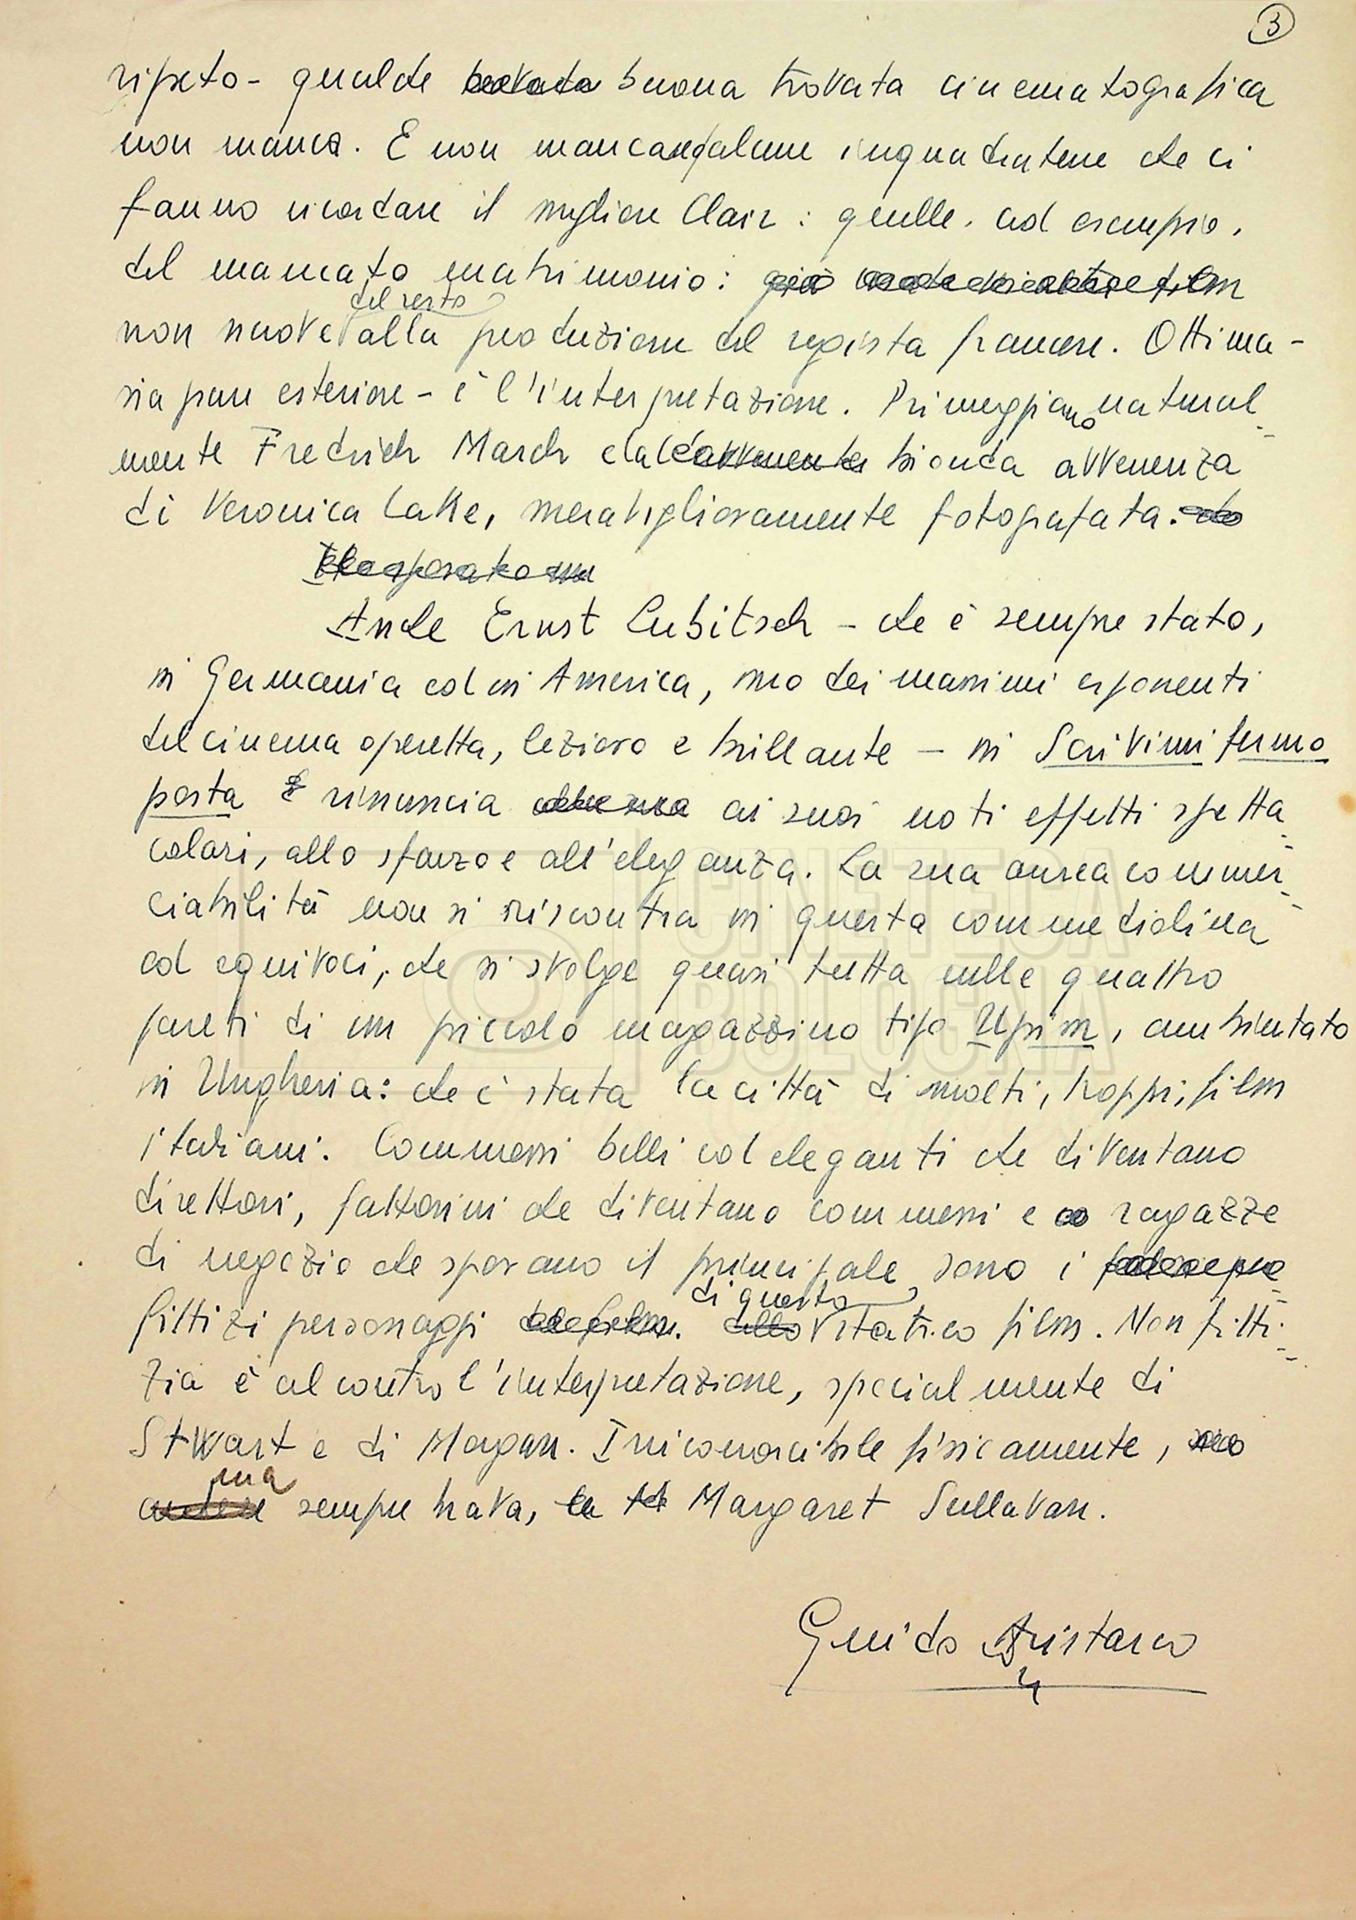 3
ripeto - qualche buona trovata cinematografica
non manca. E non mancano talune inquadrature che ci
fanno ricordare il migliore Clair: quelle, ad esempio,
del mancato matrimonio: già film
del resto
non nuove alla produzione del regista francese. Ottima -
sia pure esteriore - è l'interpretazione. Primeggiano natural
mente Fredrich March e la bionda avvenenza
di Veronica Lake, meravigliosamente fotografata.
Anche Ernst Lubitsch - che è sempre stato,
in Germania ed in America, uno dei massimi esponenti
del cinema operetta, lezioso e brillante - in Scrivimi fermo
posta rinuncia ai suoi noti effetti spetta
colari, allo sfarzo e all'eleganza. La sua aurea commer
ciabilità non si riscontra in questa commediolina
ad equivoci, che si svolge quasi tutta nelle quattro
pareti di un piccolo magazzino tipo Upim, ambientato
in Ungheria: che è stata la città di molti, troppi, film
italiani. Commessi belli ed eleganti che diventano
direttori, fattorini che diventano commessi e ragazze
di negozio che sposano il principale sono i
di questo
fittizi personaggi film. Non fitti
zia è al contro l'interpretazione, specialmente di
Stwart e di Morgan. Irriconoscibile fisicamente,
ma
sempre brava, Margaret Sullavan.
Guido Aristarco
CINETECA
BOLOGNA